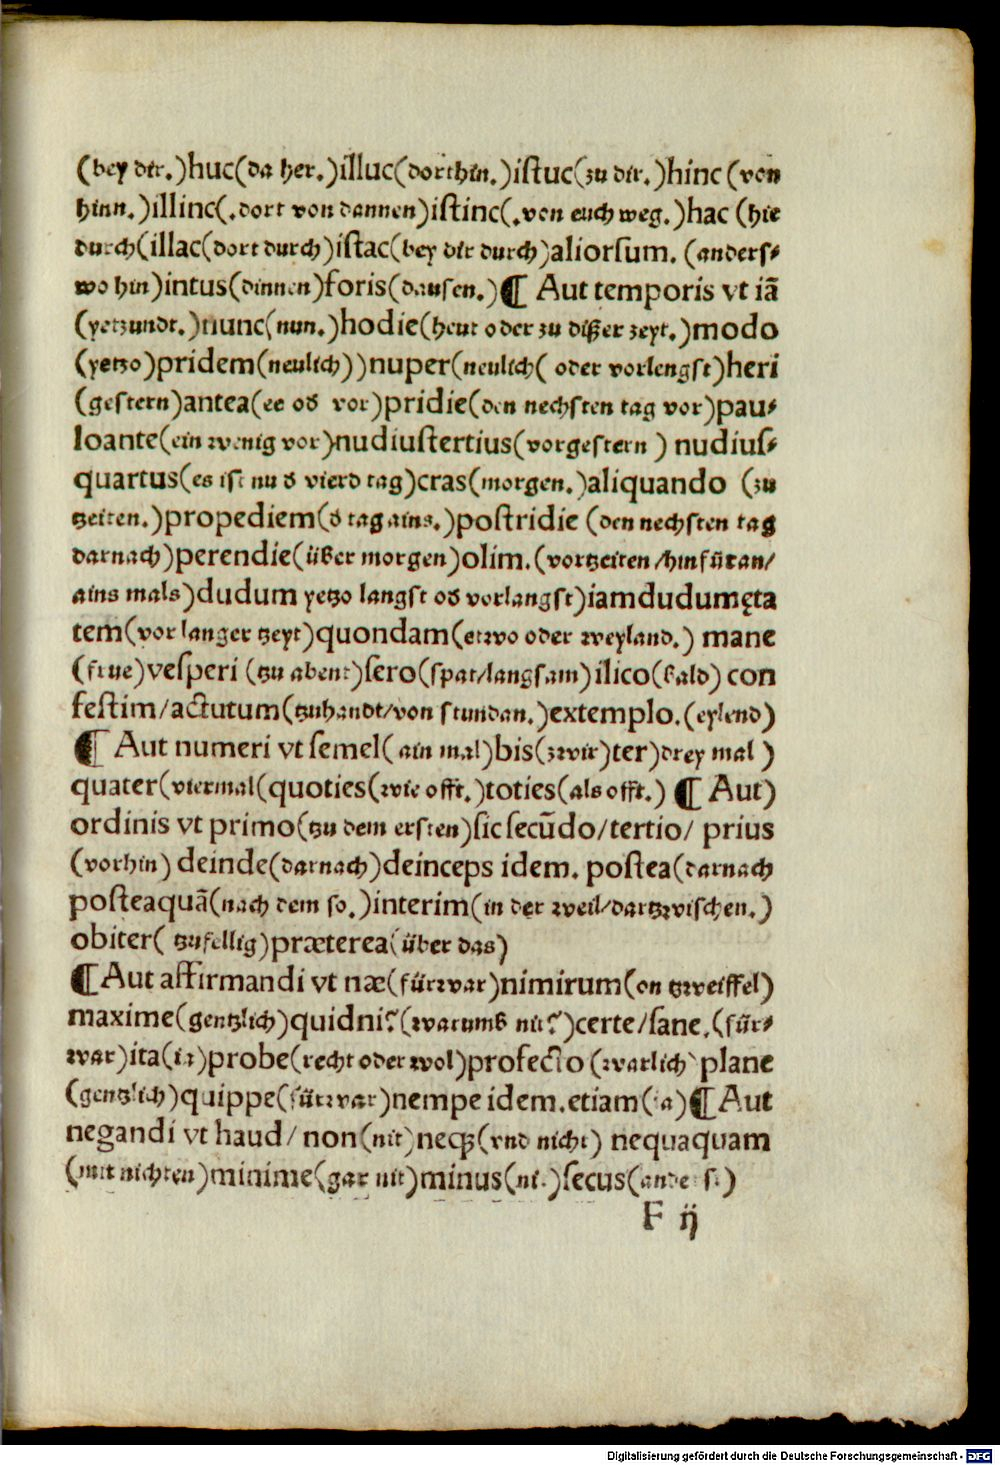 (bey dir.)huc(da her.)illuc(dorthin.)istuc(zu dir.)hinc (von
hinn.)illinc(.dort von dannen)istinc(.von euch weg.)hac (hie
durch(illac(dort durch)istac(bey dir durch)aliorſum. (anders⸗
wo hin)intus(dinnen)foris(dausen.)¶ Aut temporis vt iā
(yetzundt.)nunc(nun.)hodie(heut oder zu disser zeyt.)modo
(yetzo)pridem(neulich))nuper(neulich( oder vorlengst)heri
(gestern)antea(ee oď vor)pridie(den nechsten tag vor)pau⸗
loante(ein wenig vor)nudiustertius(vorgestern ) nudiuſ⸗
quartus(es ist nu ď vierd tag)cras(morgen.)aliquando (zu
tzeiten.)propediem(ď tag ains.)postridie (den nechsten tag
darnach)perendie(über morgen)olim.(vortzeiten/hinfüran/
ains mals)dudum yetzo langst oď vorlangst)iamdudumęta
tem(vor langer tzeyt)quondam(etwo oder weyland.) mane
(frue)veſperi (tzu abent)ſero(spat/langsam)ilico(bald) con
festim/actutum(tzuhandt/von stundan.)extemplo.(eylend)
¶ Aut numeri vt ſemel(ain mal)bis(zwir)ter)drey mal )
quater(viermal(quoties(wie offt.)toties(als offt.) ¶ Aut)
ordinis vt primo(tzu dem ersten)ſic ſecūdo/tertio/ prius
(vorhin) deinde(darnach)deinceps idem. postea(darnach
posteaquā(nach dem so.)interim(in der weil/dartzwischen.)
obiter( tzufellig)præterea(über das)
¶Aut affirmandi vt næ(fürwar)nimirum(on tzweiffel)
maxime(gentzlich)quidni?(warumb nit?)certe/ſane.(für⸗
war)ita(ia)probe(recht oder wol)profecto (warlich plane
(gentzlich)quippe(fürwar)nempe idem.etiam(ia)¶Aut
negandi vt haud/ non(nit)neqꝫ(vnd nicht) nequaquam
(mit nichten)minime(gar nit)minus(ni.)ſecus(
F ij
Digitalisierung gefördert durch die Deutsche Forschungsgemeinschaft - DFG